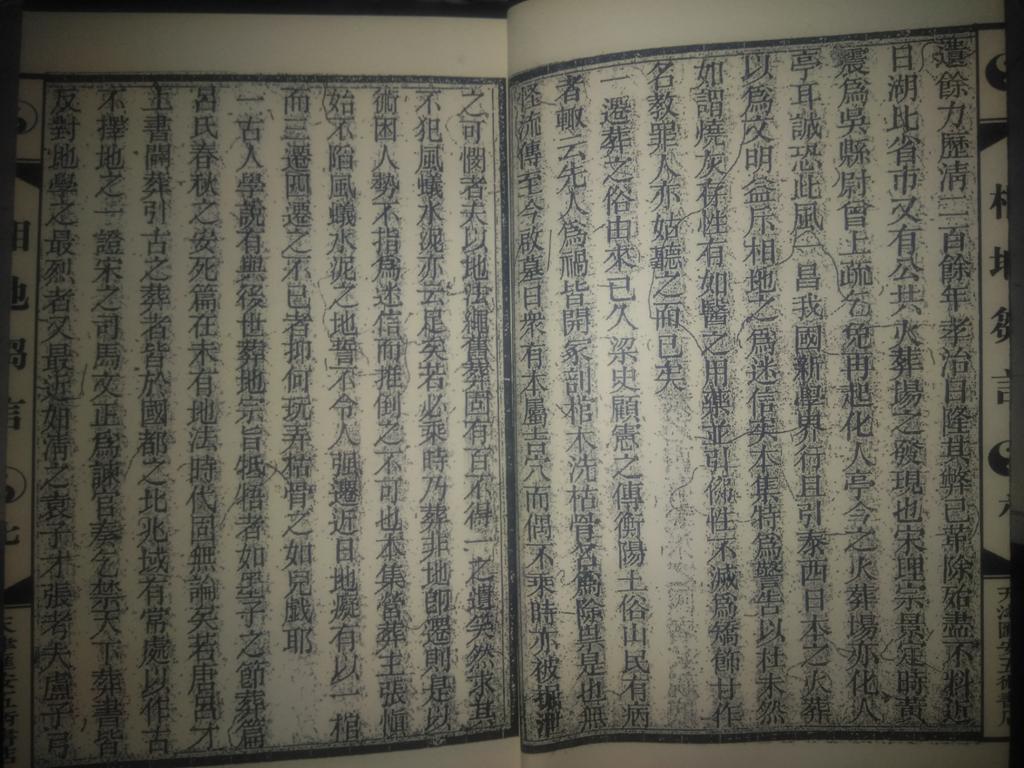 遺餘力歷清二百餘年孝治日隆其弊已革除殆盡不料近
日湖北省市又有公共火葬場之發現也宋理宗景定時黃
震爲吳縣尉曾上疏乞免再起化人亭今之火葬場亦化人
亭耳誠恐此風一昌我國新學界行且引泰西日本之火葬
以爲文明益斥相地之爲迷信矣本集特爲警告以杜未然
如謂燒灰存性有如醫之用藥並引佛性不滅爲矯飾甘作
名教罪人亦姑聽之而已矣
一遷葬之俗由來已久梁史顧憲之傳衡陽土俗山民有病
者輒云先人爲禍皆開冢剖棺木洗枯骨名爲除異是也無
怪流傳至今啟墓日衆有本屬吉穴而偶不乘時亦被掘
之可憫者夫以地法繩舊葬固有百不得一之遺笑然求其
不犯風蟻水泥亦云足矣若必乘時乃葬非地師遷則是以
術困人勢不指爲迷信而推倒之不可也本集營葬主張愼
始不陷風蟻水泥之地誓不令人強遷近日地癡有以一棺
而三遷四遷之不已者抑何玩弄枯骨之如兒戲耶
一古人學說有與後世葬地宗旨牴牾者如墨子之節葬篇
呂氏春秋之安死篇在未有地法時代固無論矣若唐呂才
主書闢葬引古之葬者皆於國都之北兆域有常處以作古
不擇地之一證宋之司馬文正爲諫官奏乞禁天下葬書皆
反對地學之最烈者又最近如淸之袁子才張考夫盧子弓